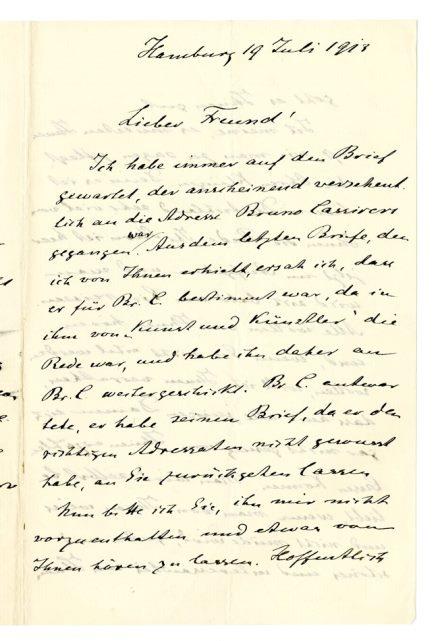 Hamburg 19 Juli 1913
Lieber Freund!
Ich habe immer auf den Brief
gewartet, der anscheinend versehent-
lich an die Adresse Bruno Cassirers
gegangen war. Aus dem letzten Briefe, den
ich von Ihnen erhielt, ersah ich, dass
er für Br. C. bestimmt war, da in
ihm von „Kunst und Künstler" die
Rede war, und habe ihn daher an
Br. C weitergeschickt. Br C. antwor
tete, er habe seinen Brief, da er den
richtigen Adressaten nicht gewusst
habe, an Sie zurückgehen lassen
Nun bitte ich Sie, ihn mir nicht
vorzuenthalten und etwas von
Ihnen hören zu lassen. Hoffentlich